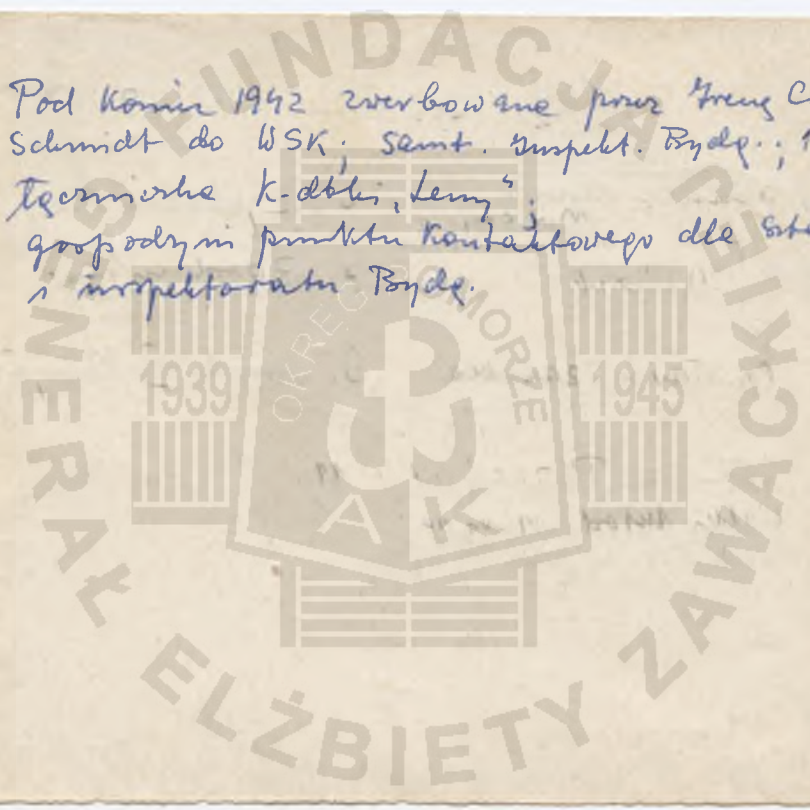 Pod koniec 1942 zwerbowana przez Irenę C
Schmidt do WSK; sanit. Inspekt. Bydg.;
łączniczka K-dtki „Leny”;
gospodyni punktu kontaktowego dla
i inspektoratu Bydg.
FUNDACJA
GENERAŁ ELŻBIETY ZAWACKIEJ
OKRĘG POMORZE
1939
1945
AK